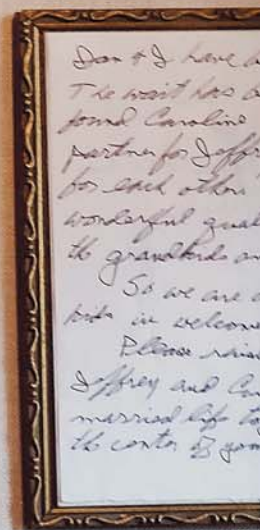 Dan & I have b
The wait has b
found Caroline
partner for Jeffr
for each other.
wonderful qual
the grandkids an
So we are a
kids in welcom
Please raise
Jeffrey and Ca
married life tog
the center of you